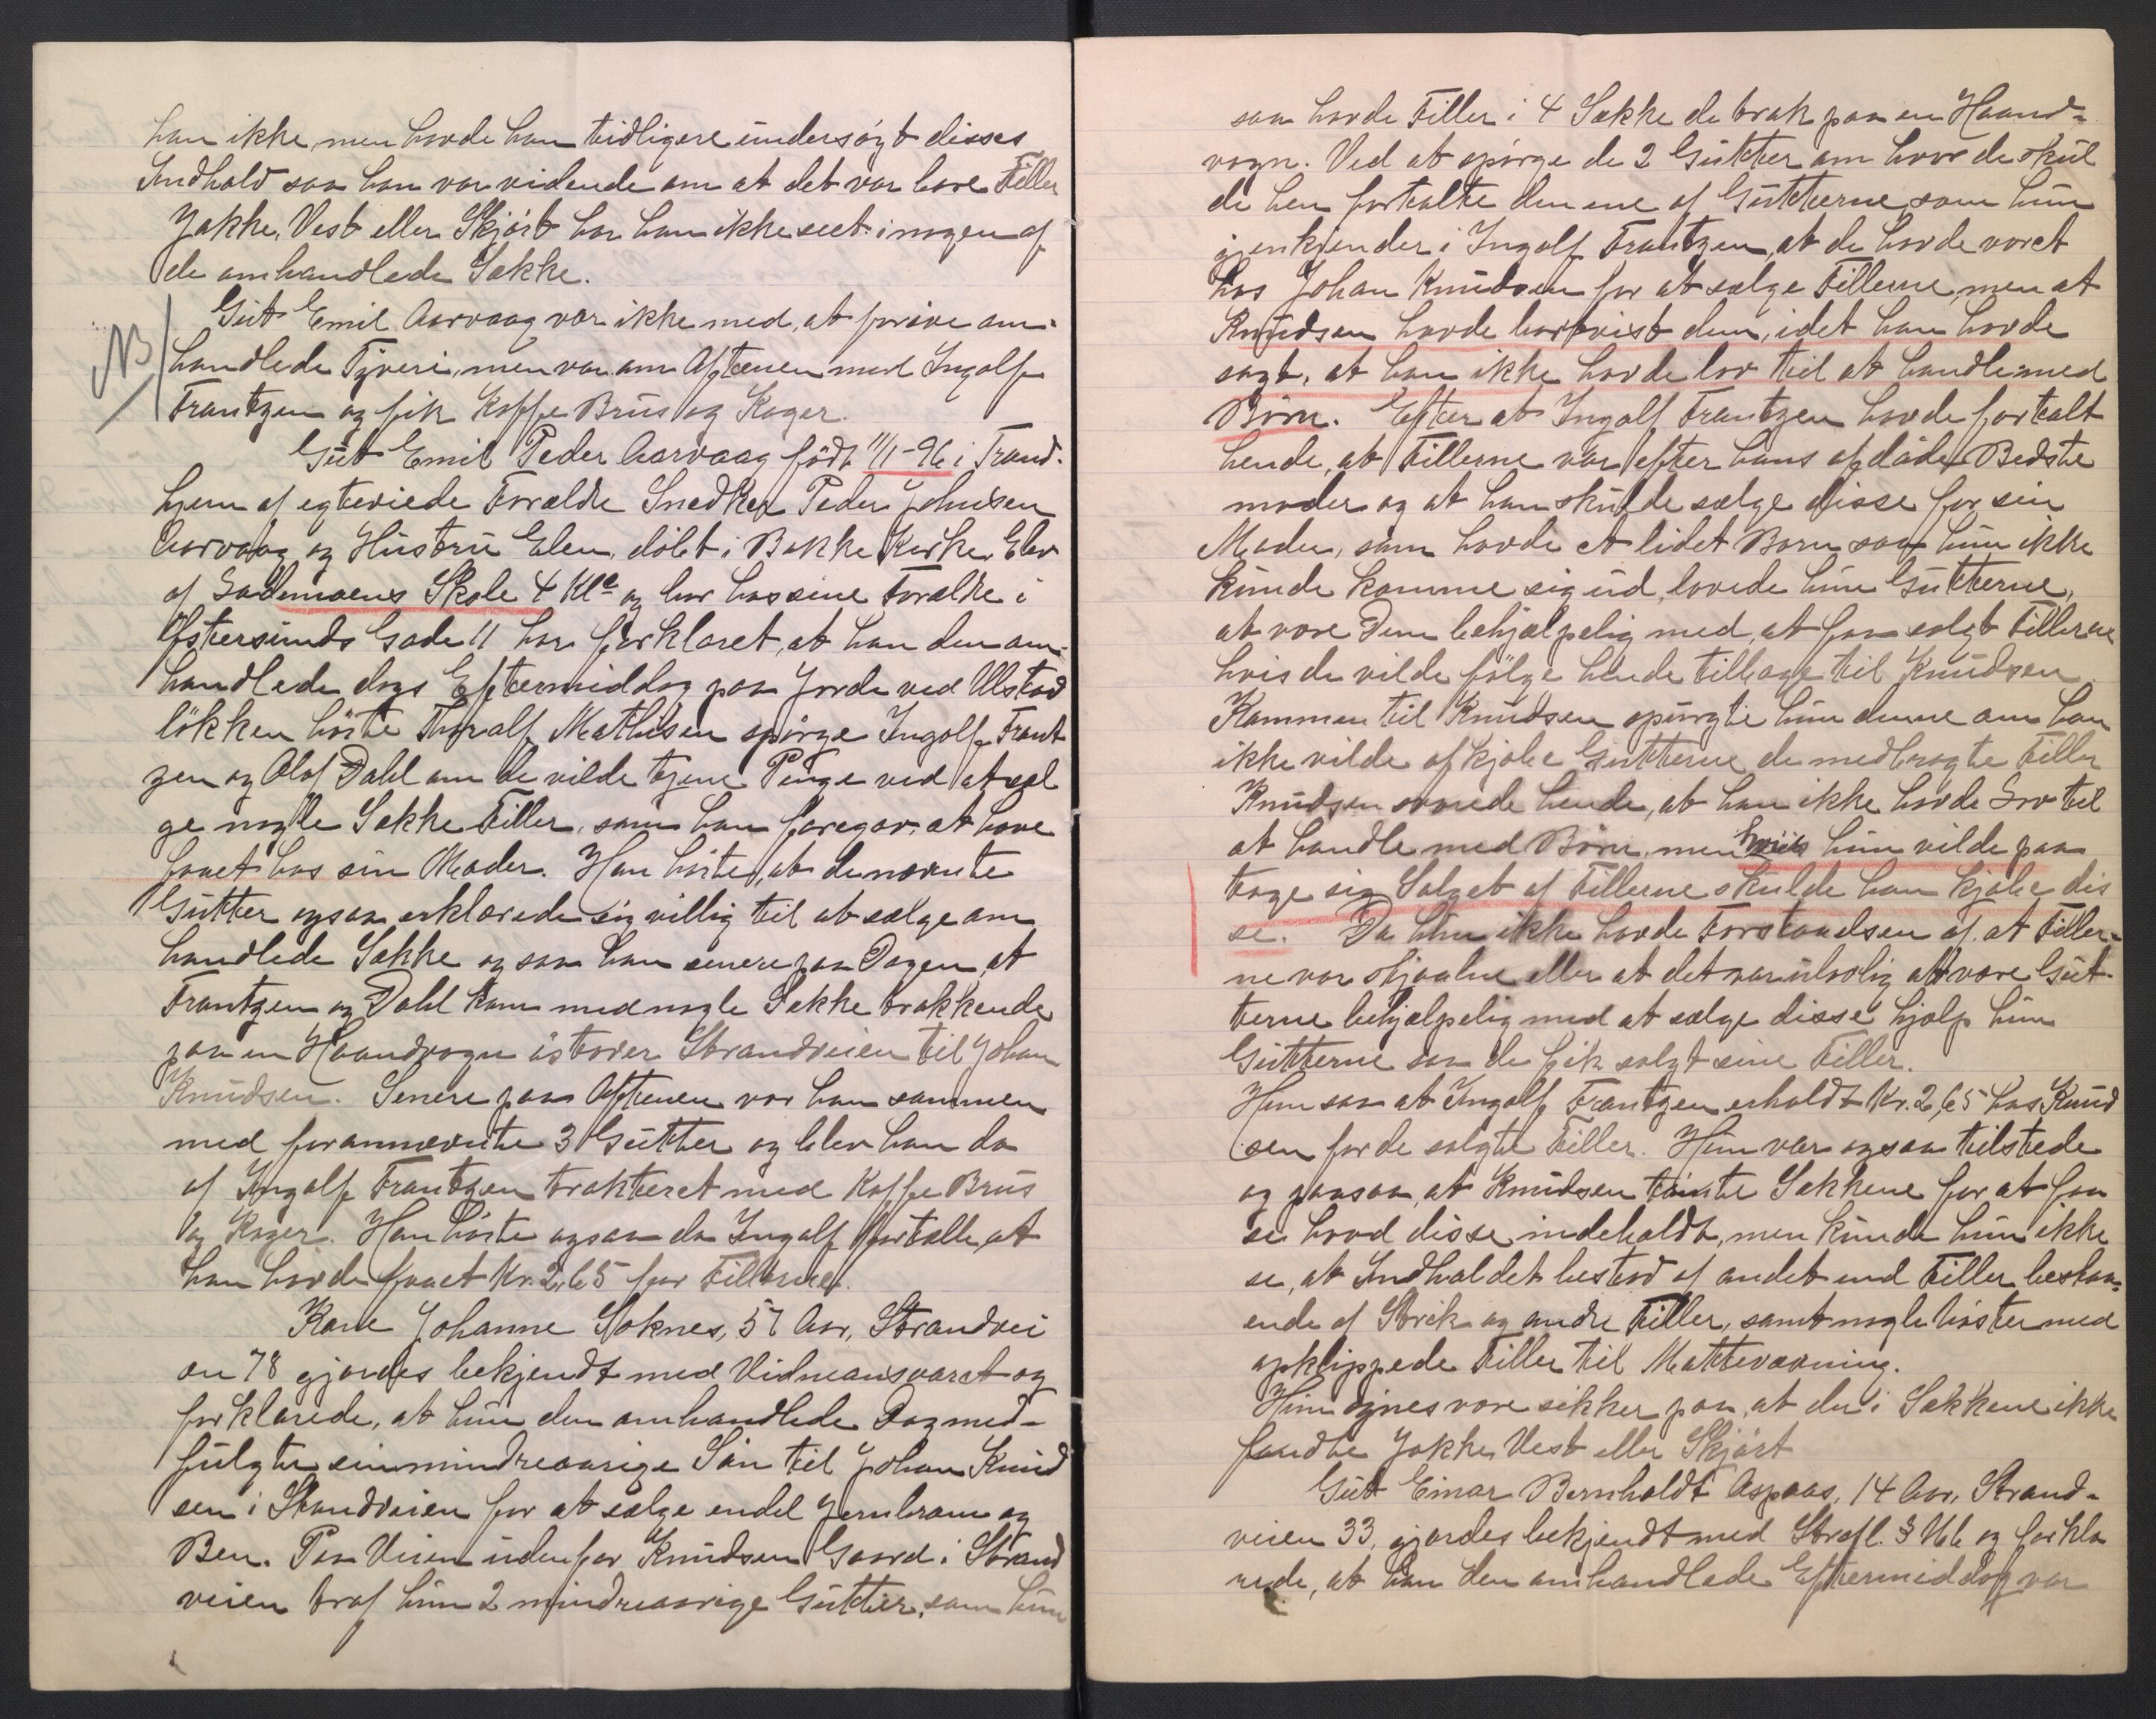 han ikke, men havde han tidligere undersøgt disses
Indhold saa han var vidende om at det var bare Filler
Jakke, Vest eller Skjørt har han ikke seet i nogen af
de omhandlede Sække.
NB
Gut Emil Aarvaag var ikke med, at forøve om-
handlede Tyveri, men var om Aftenen med Ingolf
Frantzen og fik Kaffe Brus og Kager.
Gut Emil Peder Aarvaag født 11/1-96 i Trond-
hjem af egteviede Forældre Snedker Peder Johnsen
Aarvaag og Hustru Elen, døbt i Bakke Kirke, Elev
af Lademoens Skole 4 Kle og bor hos sine Forældre i
Østersunds Gade 11 har forklaret, at han den om-
handlede dags Eftermiddag paa Jorde ved Ulstad
løkken hørte Thoralf Mathisen spørge Ingolf Frant
zen og Olaf Dahl om de vilde tjene Penge ved at sæl
ge nogle Sække Filler, som han foregav at have
faaet hos sin Moder. Han hørte, at de nævnte
Gutter ogsaa erklærede sig villig til at sælge om
handlede Sække og saa han senere paa Dagen, at
Frantzen og Dahl kom med nogle Sække trækkende
paa en Haandvogn østover Strandveien til Johan
Knudsen. Senere paa Aftenen var han sammen
med forannævnte 3 Gutter og blev han da
af Ingolf Frantzen trakteret med Kaffe Brus
og Kager. Han hørte ogsaa da Ingolf fortælle, at
han havde faaet Kr. 2,65 for Fillerne.
Kone Johanne Soknes, 57 Aar, Strandvei
en 78 gjordes bekjendt med Vidneansvaret og
forklarede, at hun den omhandlede Dag med-
fulgte sin mindreaarige Søn til Johan Knud
sen i Strandveien for at sælge endel Jernbrom og
Ben. Paa Veien udenfor Knudsen Gaard i Strand
veien traf hun 2 mindreaarige Gutter, som hun
saa havde Filler i 4 Sække de trak paa en Haand-
vogn. Ved at spørge de 2 Gutter om hvor de skul
de hen fortalte den ene af Gutterne som hun
gjenkjender i Ingolf Frantzen, at de havde været
hos Johan Knudsen for at sælge Fillerne, men at
Knudsen havde bortvist dem, idet han havde
sagt, at han ikke havde lov til at handle med
Børn. Efter at Ingolf Frantzen havde fortalt
hende, at Fillerne var efter hans afdøde Bedste
moder og at han skulde sælge disse for sin
Moder, som havde et lidet Barn saa hun ikke
kunde komme sig ud, lovede hun Gutterne,
at være Dem behjælpelig med, at faa solgt Fillerne
hvis de vilde følge hende tilbage til Knudsen.
Kommen til Knudsen spurgte hun denne om han
ikke vilde afkjøbe Gutterne de medbragte Filler
Knudsen svarede hende, at han ikke havde Lov til
at handle med Børn, men hviis hun vilde paa
tage sig Salget af Fillerne skulde han kjøbe dis
se. Da hun ikke havde Forstaaelsen af at Filler-
ne var stjaalne eller at det var ulovlig at være Gut-
terne behjælpelig med at sælge disse hjalp hun
Gutterne saa de fik solgt sine Filler.
Hun saa at Ingolf Frantzen erholdt Kr. 2,65 hos Knud
sen for de solgte Filler. Hun var ogsaa tilstede
og paasaa, at Knudsen tømte Sækkene for at faa
se hvad disse indeholdt, men kunde hun ikke
se, at Indholdet bestod af andet end Filler bestaa-
ende af Strik og andre Filler, samt nogle Nøster med
opklippede Filler til Mattevævning.
Hun synes være sikker paa, at der i Sækkene ikke
fandtes Jakke, Vest eller Skjørt
Gut Einar Bernholdt Aspaas, 14 Aar, Strand-
veien 33, gjordes bekjendt med Strafl. § 166 og forkla
rede, at han den omhandlede Eftermiddag var